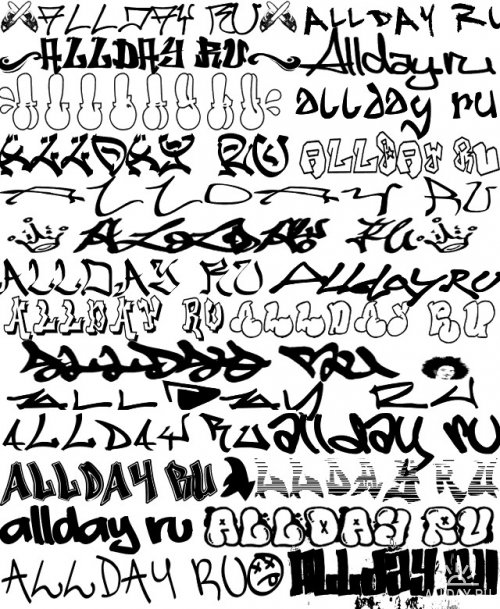 ALLDAY RU ALLDAY RU
ALLDAY RU Allday ru
allday ru
ALLDAY RU ALLDAY RU
ALLDAY RU
ALLDAY RU
ALLDAY RU Allday.RU
ALLDAY RU ALLDAY RU
ALLDAY RU
ALLDAY RU
ALLDAY RU allday ru
ALLDAY RU ALLDAY RU
allday ru ALLDAY RU
ALLDAY RU ALLDAY RU
ALLDAY.RU